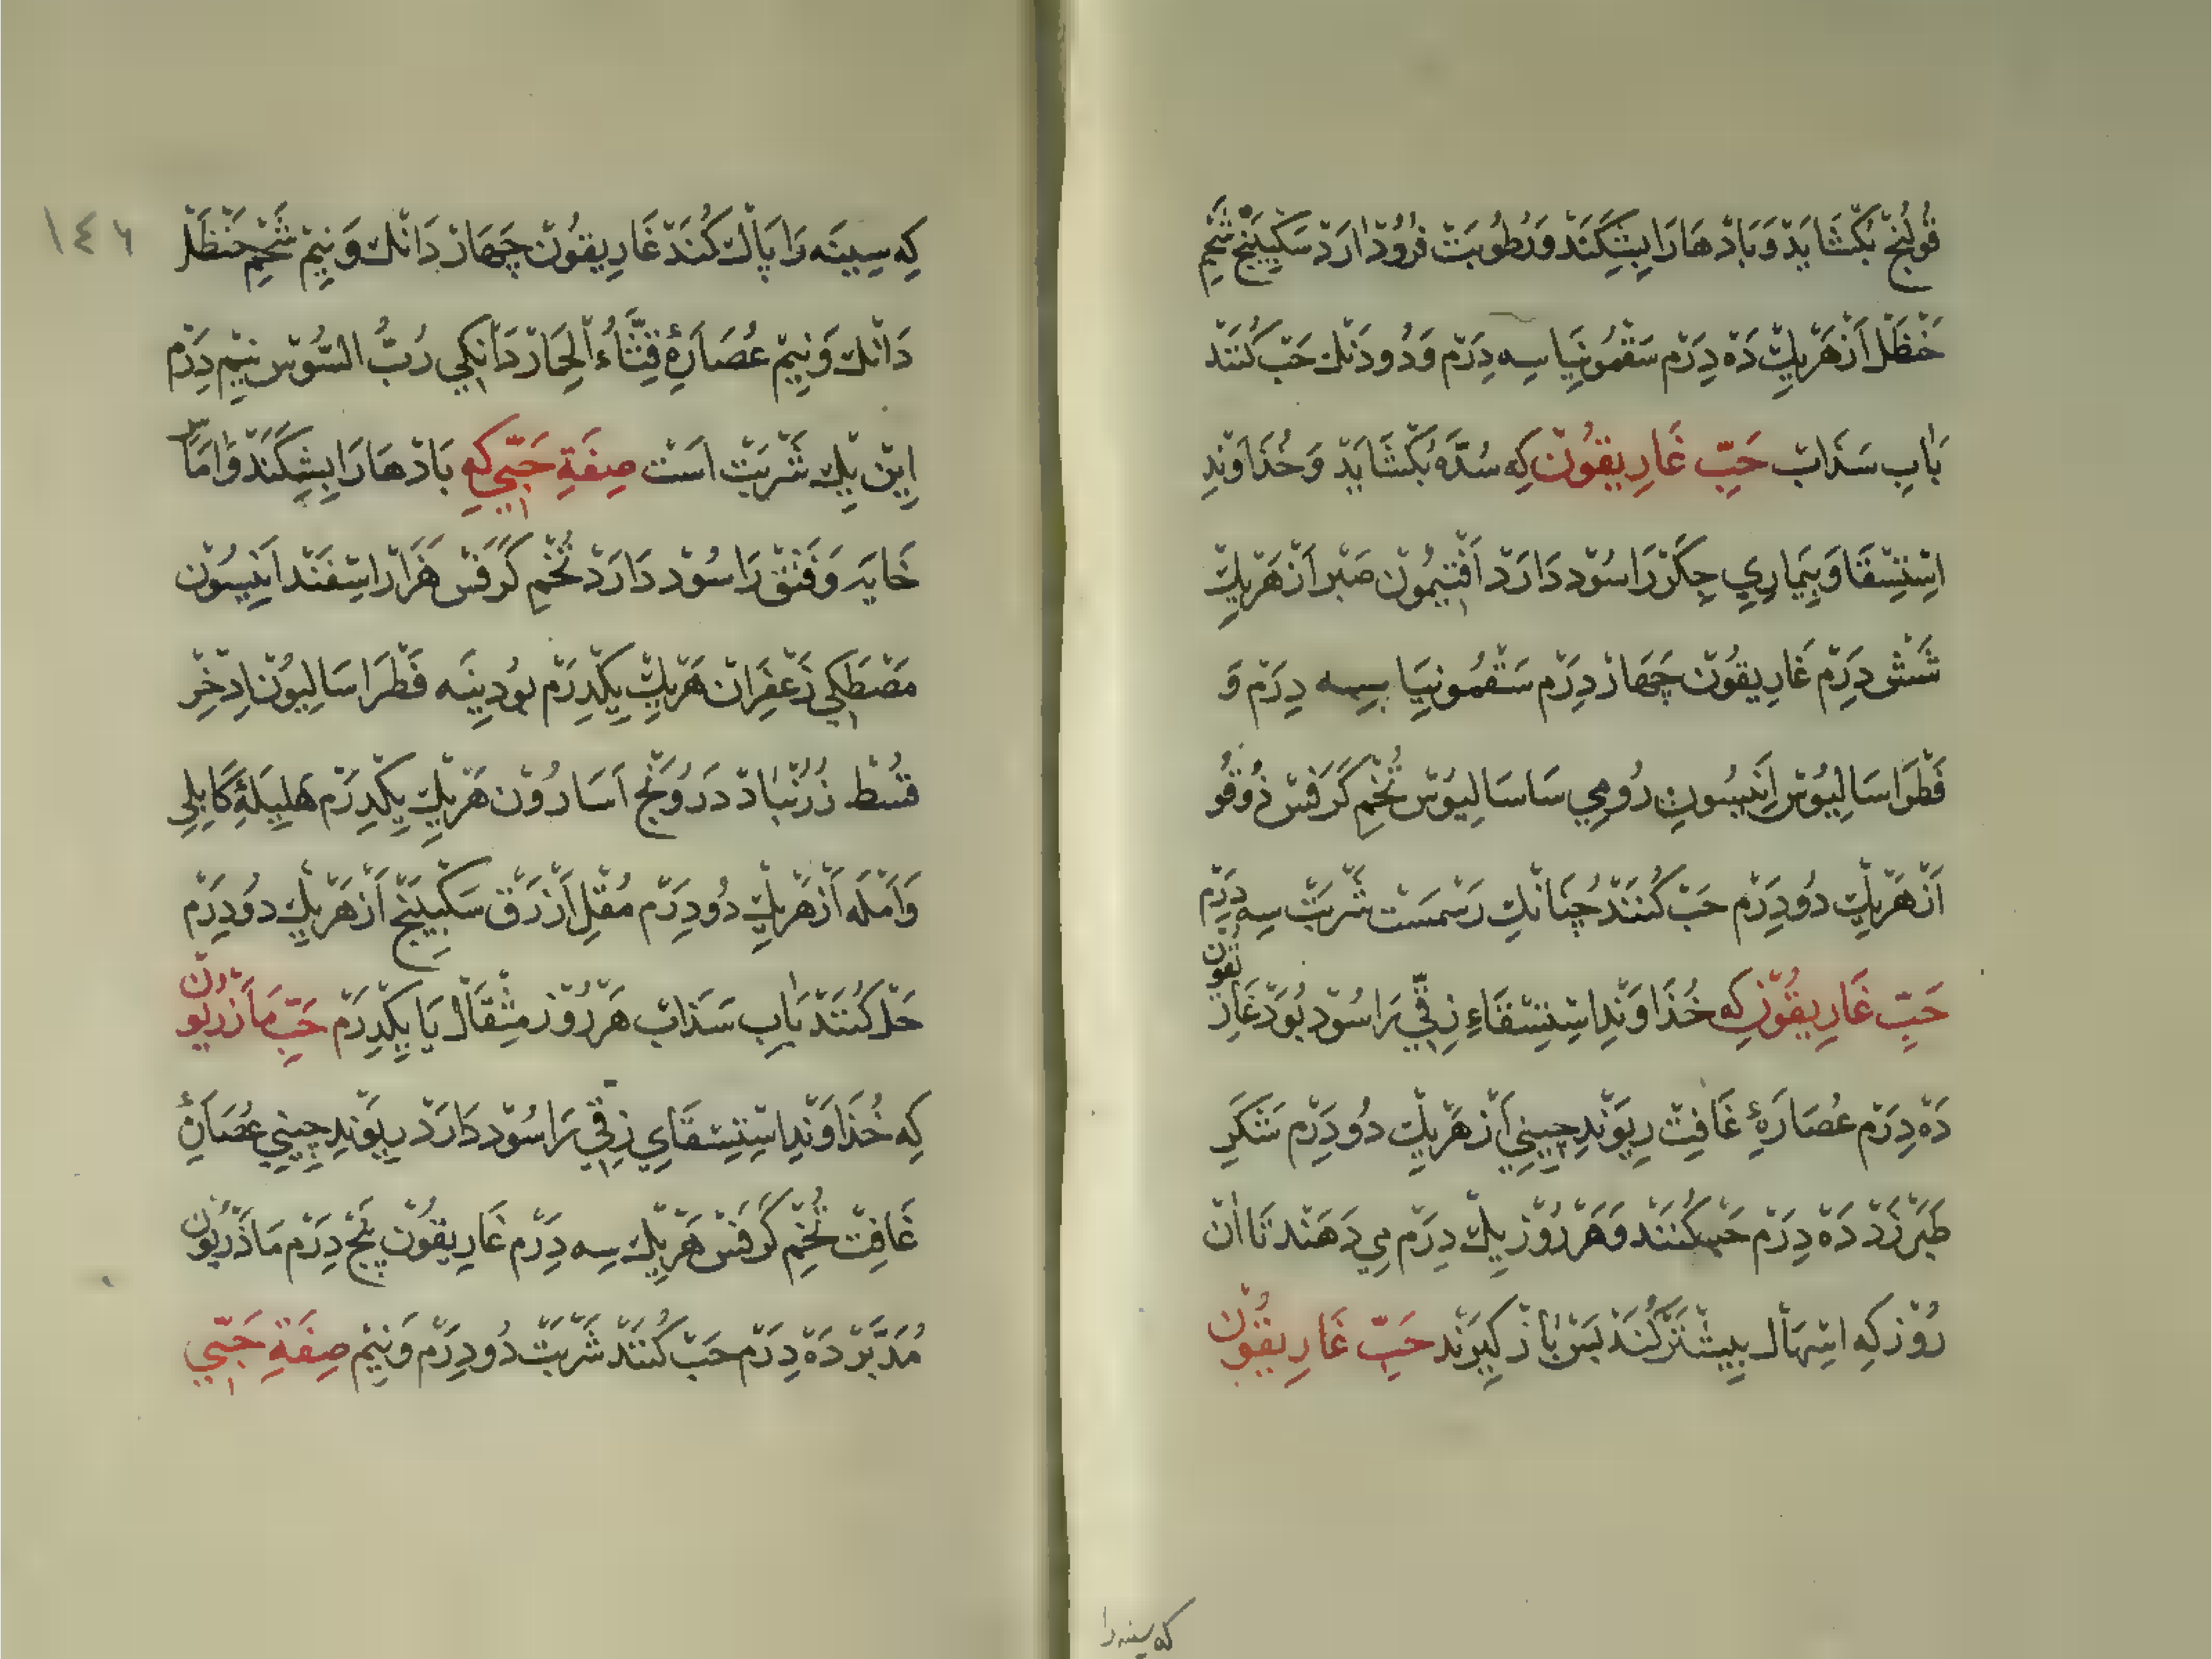 قُولَنْج بُكْشَايَدْ وَبَادْهَارَا بِشِكَنَدْ وَرُطُوبَتْ فُرُودْ ارَدْ سَكْبِينَجْ شَحْمِ
حَنْظَلْ اَزْ هَرْيِكْ دَهْ دِرَمْ سَقْمُونِيَا سِه دِرَمْ وَدُو دَنْك حَبْ كُنَنْد
بَابِ سَذَابْ حَبِّ غَارِيقُونْ كِه سُدَّه بُكْشَايَدْ وَخُذَاوَنْدِ
اِسْتِسْقَا وَبِيمَارِيِ جِكَرْ رَا سُوْد دَارَدْ اَفْتِيمُونْ صَبْر اَزْ هَرْيِكْ
شَشْ دِرَمْ غَارِيقُونْ چَهَارْ دِرَمْ سَقْمُونِيَا سِه دِرَمْ وَ
فَطْرَاسَالِيُوْنْ اَنِيسُونِ رُومِي سَاسَالِيُوسْ تُخْمِ كَرَفْسْ دُوقُو
اَزْ هَرْيِكْ دُو دِرَمْ حَبْ كُنَنْدْ چُنَانْك رَسْمَسْت شَرْبَتْ سِه دِرَمْ
حَبِّ غَارِيقُونْ كِه خُذَاوَنْدِ اِسْتِسْقَاءِ زِقِّي رَا سُوْد بُوَدْ غَارِيقُونْ
دَهْ دِرَمْ عُصَارَهٔ غَافِتْ رِيوَنْدِ چِينِي اَزْ هَرْيِكْ دُو دِرَمْ شَكَرِ
طَبَرْزَدْ دَهْ دِرَمْ حَبْ كُنَنْد وَهَرْ رُوْزْ يِكْ دِرَمْ مِي دَهَنْد تَا انْ
رُوْز كِه اِسْهَالْ بِيشْتَرْ كُنَدْ پَسْ بَازْ كِيرَنْد حَبِّ غَارِيقُونْ
كه سينه را
١٤٦
كِه سِينَه رَا پَاكْ كُنَدْ غَارِيقُونْ چَهَارْ دَانْك وَنِيمْ شَحْمِ حَنْظَلْ
دَانْك وَنِيمْ عُصَارَهٔ قِثَّاءُ الْحِمَارْ دَانْكِي رُبُّ السُّوسْ نِيمْ دِرَمْ
اِينْ يِكْ شَرْبَتْ اَسْت صِفَةِ حَبِّي كِه بَادْهَارَا بِشِكَنَدْ وَامَاسِ
خَايَه وَفَتْقْ رَا سُوْد دَارَدْ تُخْمِ كَرَفْسْ هَزَارْ اسْفَنْد اَنِيسُونْ
مَصْطَكِي زَعْفَرَانْ هَرْيِكْ يِكْدِرَمْ بُودِينَه فَطْرَاسَالِيُونْ اِذْخِرْ
قُسْط زُرُنْبَادْ دَرُوْنَجْ اَسَارُوْنْ هَرْيِكْ يِكْدِرَمْ هَلِيلَهٔ كَابُلِي
وَامْلَه اَزْ هَرْيِكْ دُو دِرَمْ مُقْلِ اَزْرَقْ سَكْبِينَجْ اَزْ هَرْيِكْ دُو دِرَمْ
حَلْ كُنَنْد بَابِ سَذَابْ هَرْ رُوْز مِثْقَالْ يَا يِكْدِرَمْ حَبِّ مَازَرْيُونْ
كِه خُذَاوَنْدِ اِسْتِسْقَايِ زِقِّي رَا سُوْد دَارَدْ رِيوَنْدِ چِينِي عُصَارَهٔ
غَافِتْ تُخْمِ كَرَفْسْ هَرْيِكْ سِه دِرَمْ غَارِيقُونْ پَنْجْ دِرَمْ مَاذَرْيُونْ
مُدَبَّرْ دَهْ دِرَمْ حَبْ كُنَنْدْ شَرْبَتْ دُو دِرَمْ وَنِيمْ صِفَةِ حَبِّي